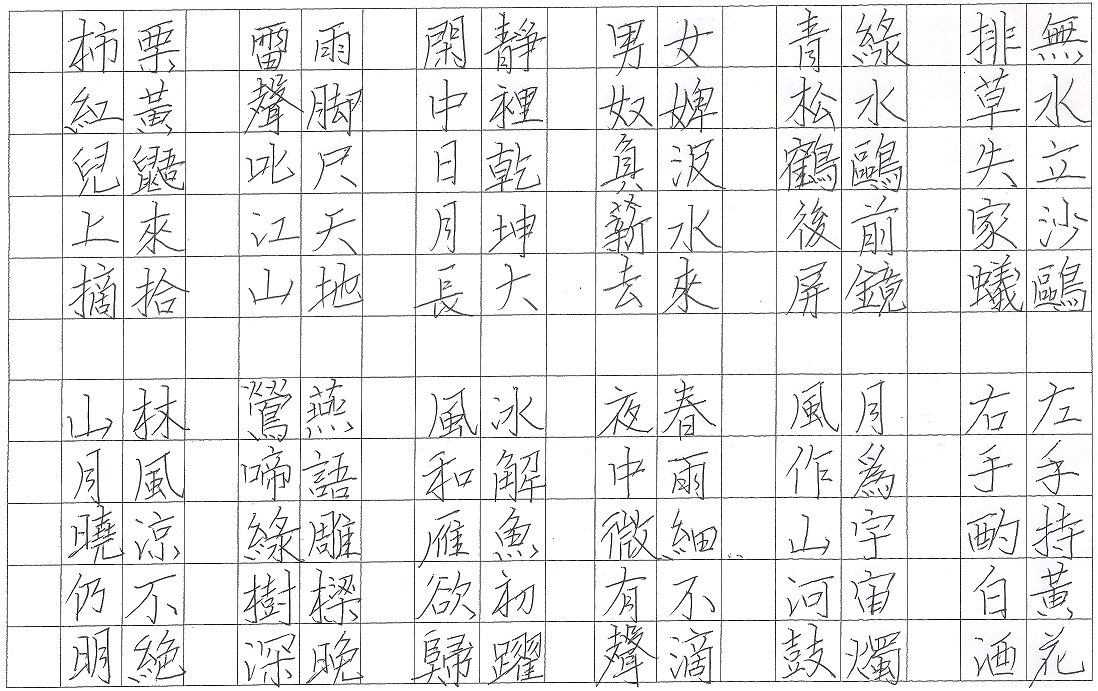 無水立沙鷗
排草失家蟻
綠水鷗前鏡
青松鶴後屏
女婢汲水來
男奴負薪去
靜裡乾坤大
閑中日月長
雨脚尺天地
雷聲叱江山
栗黃鼯來拾
柿紅兒上摘
左手持黃花
右手酌白酒
月爲宇宙燭
風作山河鼓
春雨細不滴
夜中微有聲
冰解魚初躍
風和雁欲歸
燕語雕樑晚
鶯啼綠樹深
林風涼不絶
山月曉仍明